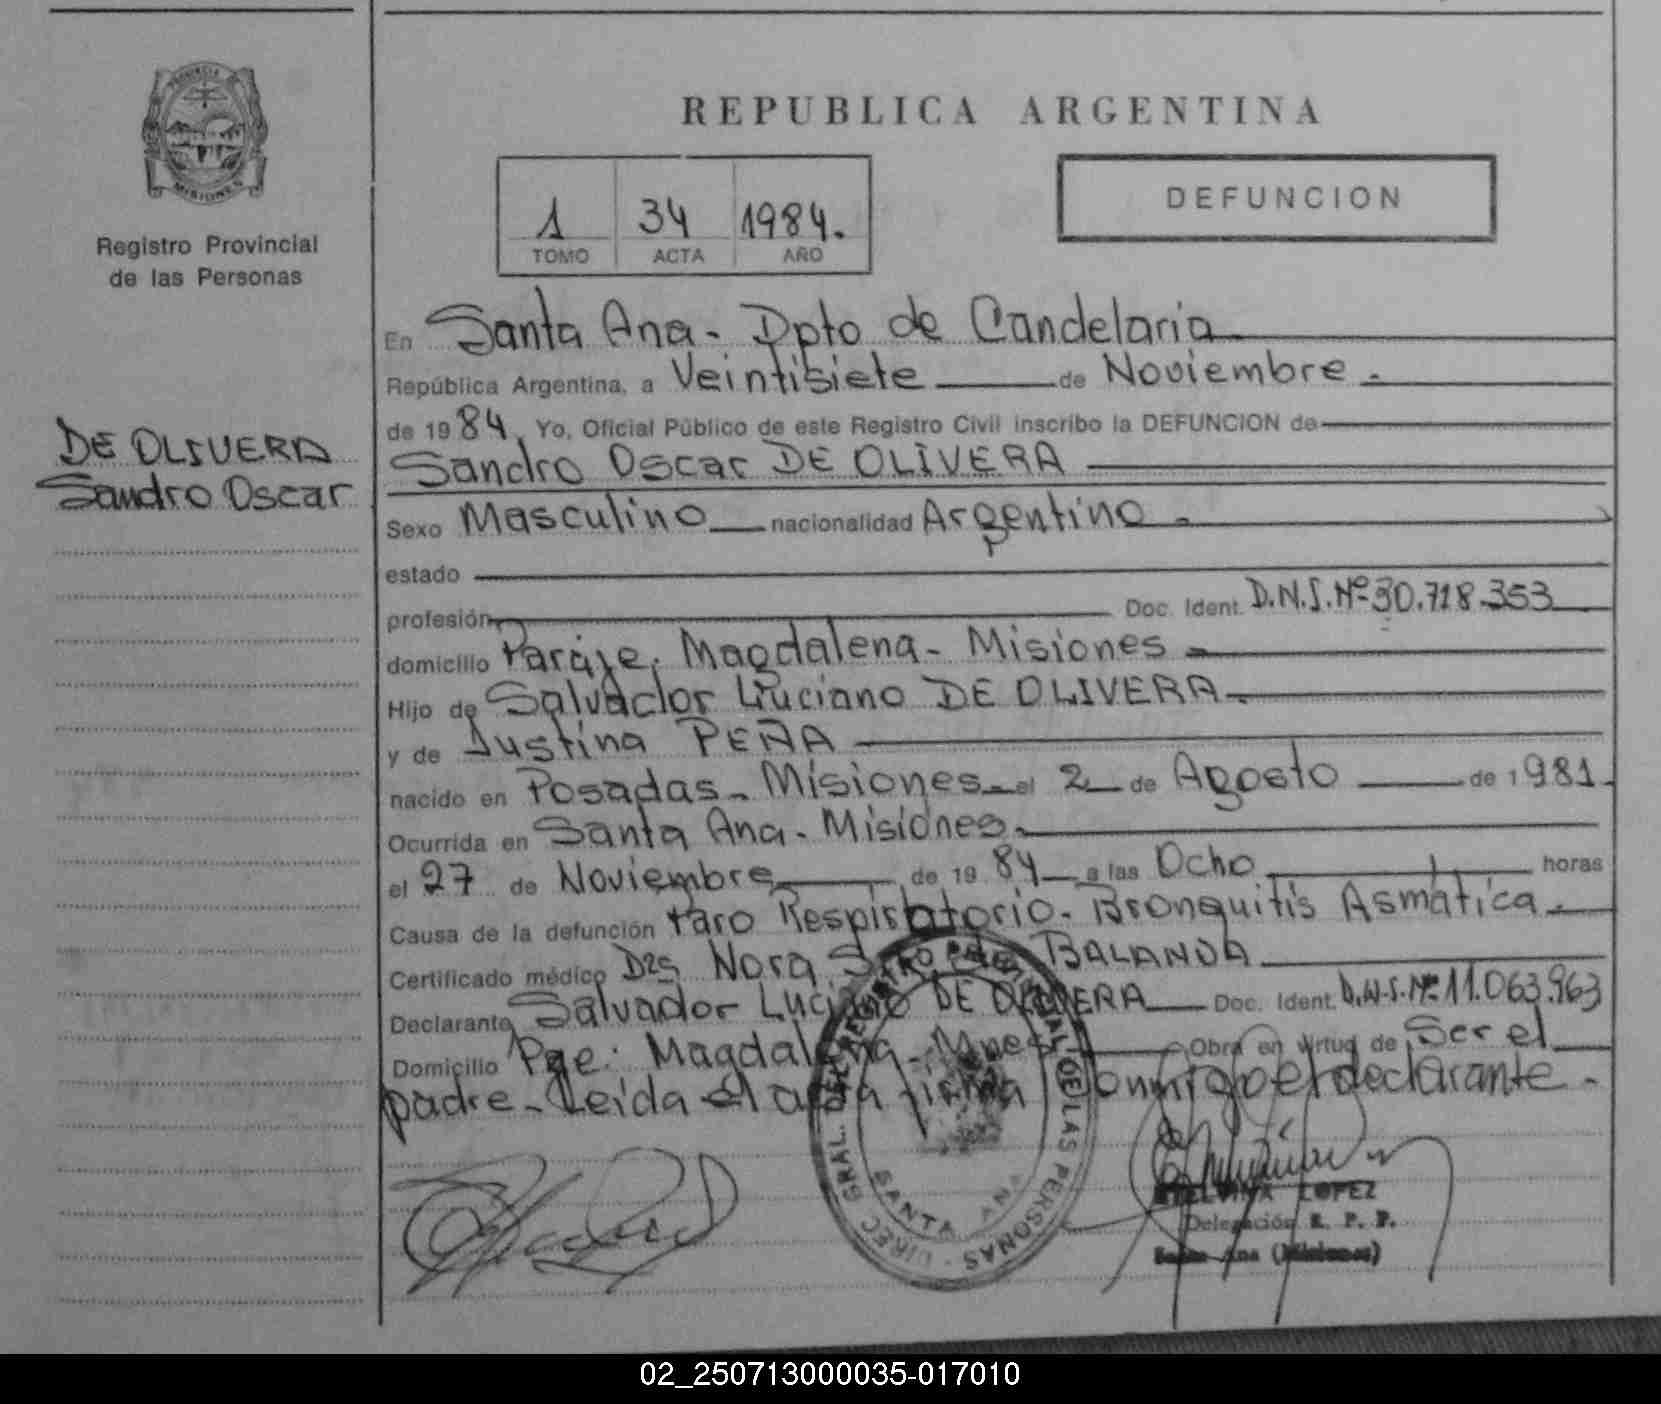 PROVINCIA
MISIONES
Registro Provincial
de las Personas
DE OLIVERA
Sandro Oscar
REPUBLICA ARGENTINA
1 34 1984.
TOMO ACTA AÑO
DEFUNCION
En Santa Ana - Dpto de Candelaria
República Argentina, a Veintisiete de Noviembre.
de 1984, Yo, Oficial Público de este Registro Civil inscribo la DEFUNCION de
Sandro Oscar DE OLIVERA
Sexo Masculino nacionalidad Argentino
estado
profesión Doc. Ident. D.N.I. Nº 30.718.353
domicilio Paraje. Magdalena - Misiones
Hijo de Salvador Luciano DE OLIVERA
y de Justina PEÑA
nacido en Posadas - Misiones el 2 de Agosto de 1981
Ocurrida en Santa Ana - Misiones
el 27 de Noviembre de 1984 a las Ocho horas
Causa de la defunción Paro Respiratorio - Bronquitis Asmática
Certificado médico Nora BALANDA
Declarante Salvador Luciano DE OLIVERA Doc. Ident. D.N.I. Nº 11.063.963
Domicilio Pje: Magdalena - Mnes Obra en virtud de Ser el
padre - Leida el acta firma conmigo el declarante -
DIREC. GRAL. DEL REGISTRO PROVINCIAL DE LAS PERSONAS
SANTA ANA
ETELVINA LOPEZ
Delegación R. P. P.
Santa Ana (Misiones)
02_250713000035-017010